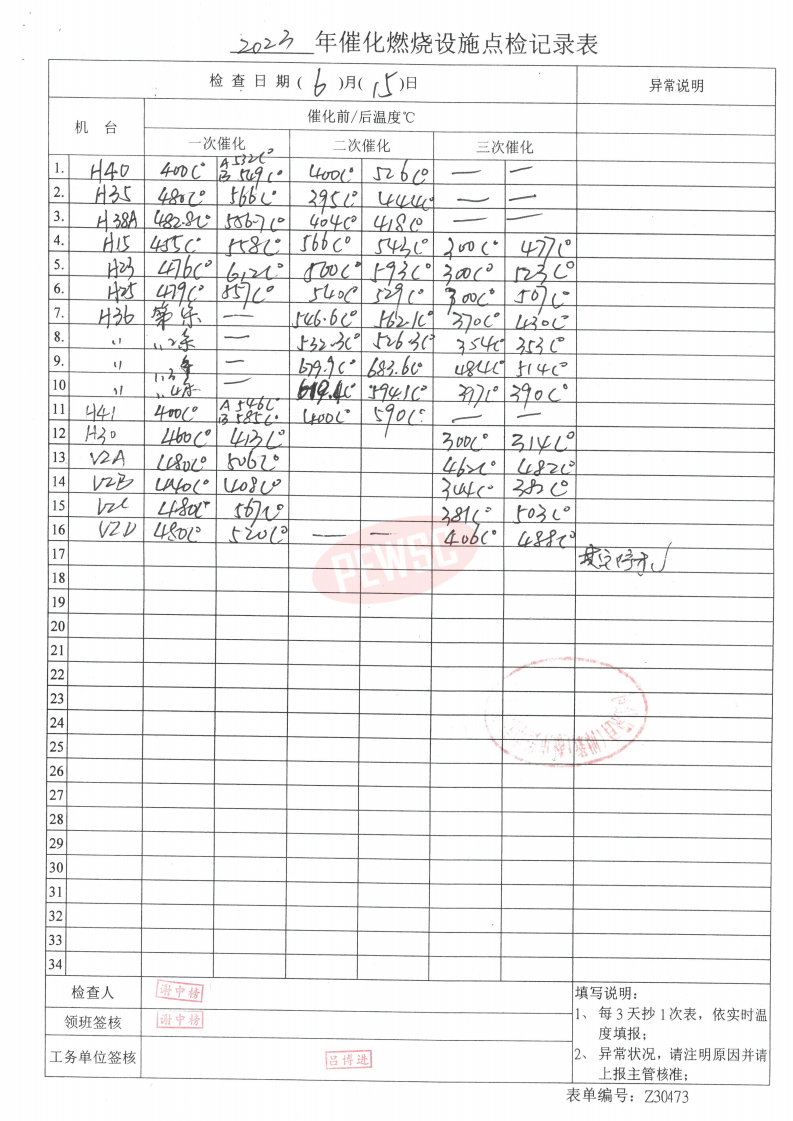 2023 年催化燃烧设施点检记录表
检 查 日 期 ( 6 )月( 15 )日 异常说明
机 台 催化前/后温度℃
一次催化 二次催化 三次催化
1. H40 400C° A 532C° B 549C° 400C° 526C° — —
2. H35 480C° 566C° 395C° 444C° — —
3. H38A 482.8C° 586.7C° 404C° 418C° — —
4. H15 455C° 558C° 566C° 543C° 300C° 477C°
5. H23 476C° 612C° 560C° 593C° 300C° 523C°
6. H25 479C° 857C° 540C 529C° 300C° 567C°
7. H36 — 546.6C° 562.1C° 370C° 430C°
8. 〃 〃2条 — 532.3C° 526.3C° 354C° 353C°
9. 〃 〃3条 — 679.9C° 683.6C° 484C° 514C°
10 〃 〃4条 — 619.4C° 594.1C° 397C° 390C°
11 H41 400C° A 546C° B 585C° 400C° 590C° — —
12 H30 460C° 413C° 300C° 314C°
13 V2A 480C° 506C° 462C° 482C°
14 V2B 440C° 408C° 344C° 382C°
15 V2C 480C° 567C° 381C° 503C°
16 V2D 480C° 520C° — — 406C° 488C°
17
PEWSC
18
19
20
21
22
23
24
25
26
27
28
29
30
31
32
33
34
检查人 谢中榜
领班签核 谢中榜
工务单位签核 吕博进
填写说明:
1、 每 3 天抄 1 次表，依实时温
度填报；
2、 异常状况，请注明原因并请
上报主管核准；
表单编号：Z30473